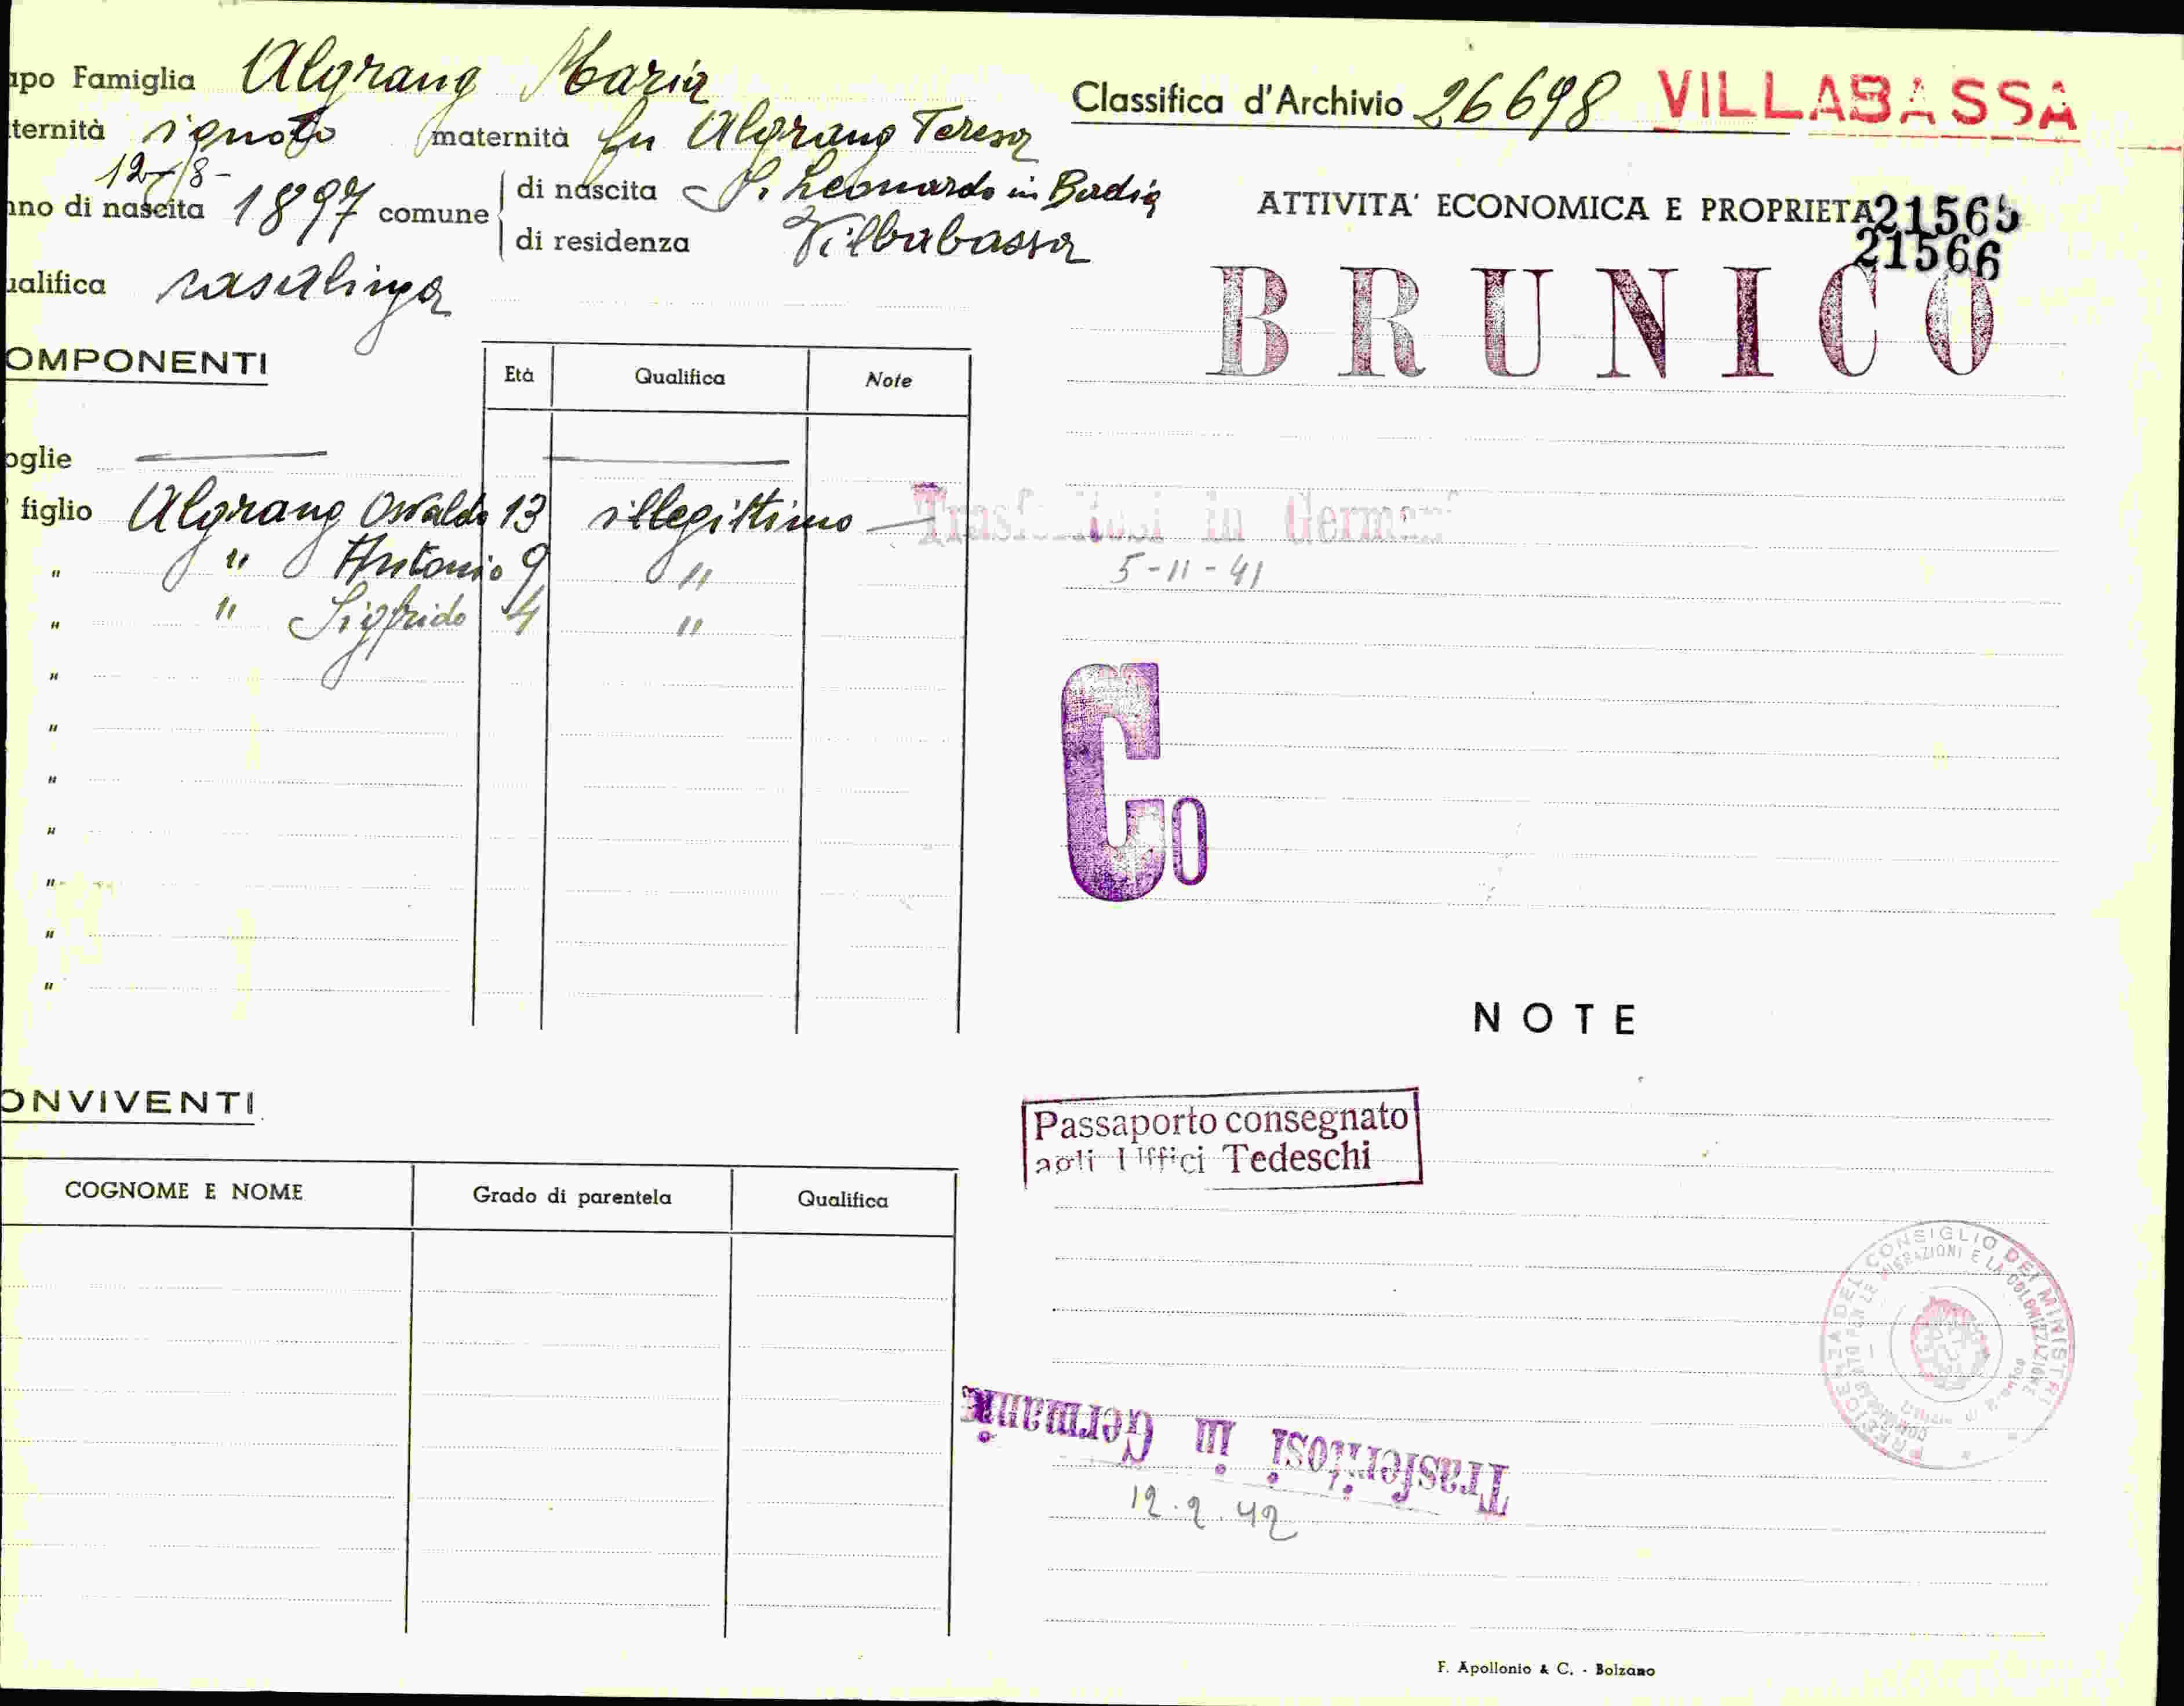 apo Famiglia Algrang Maria
ternità ignoto maternità fu Algrang Teresa
12-/8-
nno di nascita 1897 comune di nascita S. Leonardo in Badia
di residenza Villabassa
ualifica casalinga
OMPONENTI
Età Qualifica Note
oglie
figlio Algrang Osvaldo 13 illegittimo
" " Antonio 9 "
" " Sigfrido 4 "
"
"
"
"
"
"
"
ONVIVENTI
COGNOME E NOME Grado di parentela Qualifica
Classifica d'Archivio 26698 VILLABASSA
ATTIVITA' ECONOMICA E PROPRIETA 21565
21566
BRUNICO
Trasferitosi in Germani
5-11-41
Co
NOTE
Passaporto consegnato
agli Uffici Tedeschi
PRESIDENZA DEL CONSIGLIO DEI MINISTRI
MIGRAZIONI E LA COLONIZZAZIONE
Trasferitosi in Germani
12.2.42
F. Apollonio & C. - Bolzano